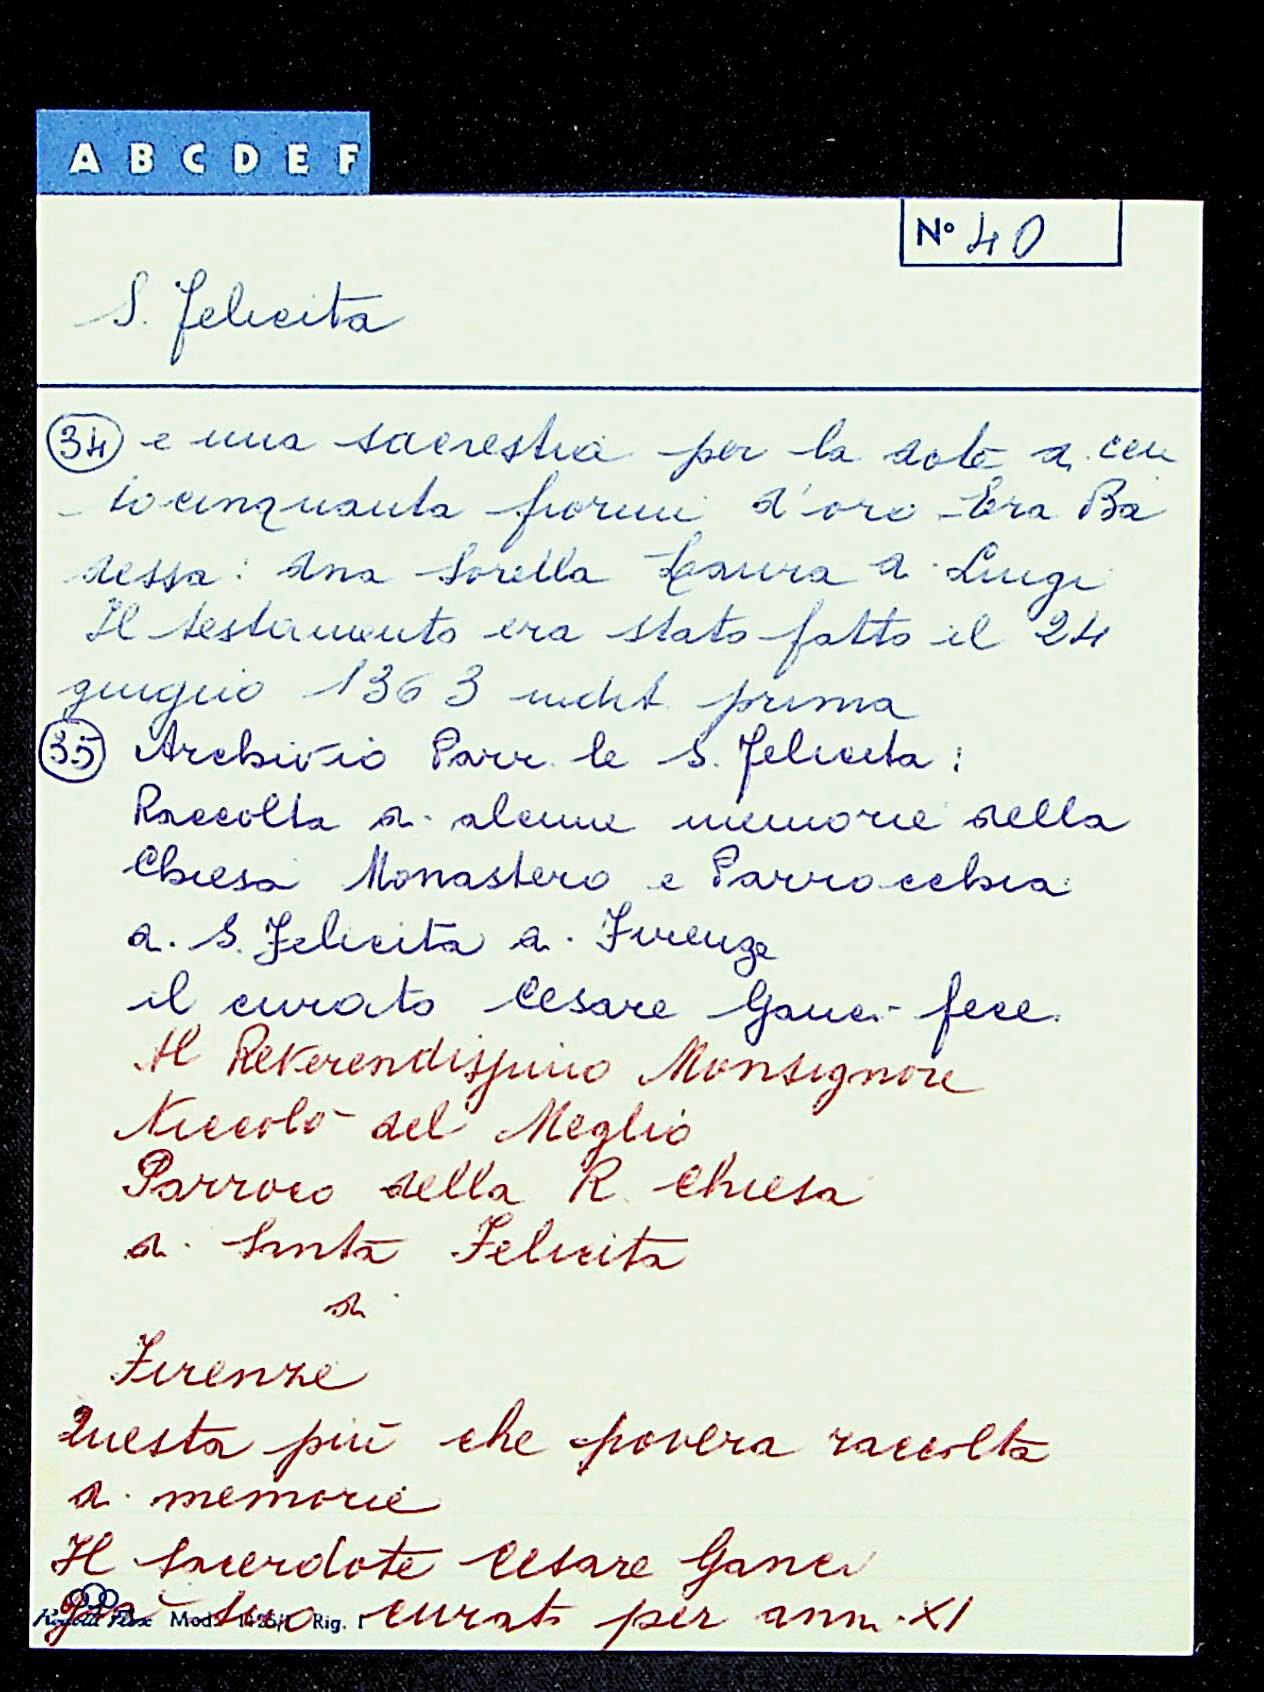 A B C D E F
N° 40
S. Felicita
34 e una sacrestia per la dote di cen
tocinquanta fiorini d'oro Era Ba
dessa: dna Sorella Laura di Luigi
Il testamento era stato fatto il 24
giugno 1363 indit. prima
35 Archivio Parr. le S. Felicita:
Raccolta di alcune memorie della
Chiesa Monastero e Parrocchia
di S. Felicita di Firenze
il curato Cesare Ganci fece.
Al Reverendissimo Monsignore
Niccolò del Meglio
Parroco della R. Chiesa
di Santa Felicita
di
Firenze
Questa più che povera raccolta
di memorie
Il Sacerdote Cesare Ganci
già suo curato per anni XI
Mod. Rig. 1